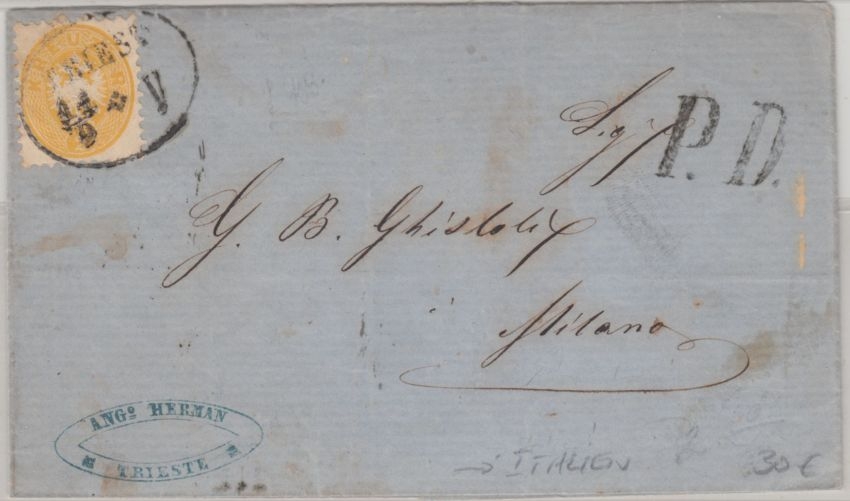 TRIEST
14
9
V
P.D.
G. B. Ghislolix
Milano
ANGº HERMAN
TRIESTE
→ ITALIEN
30 €